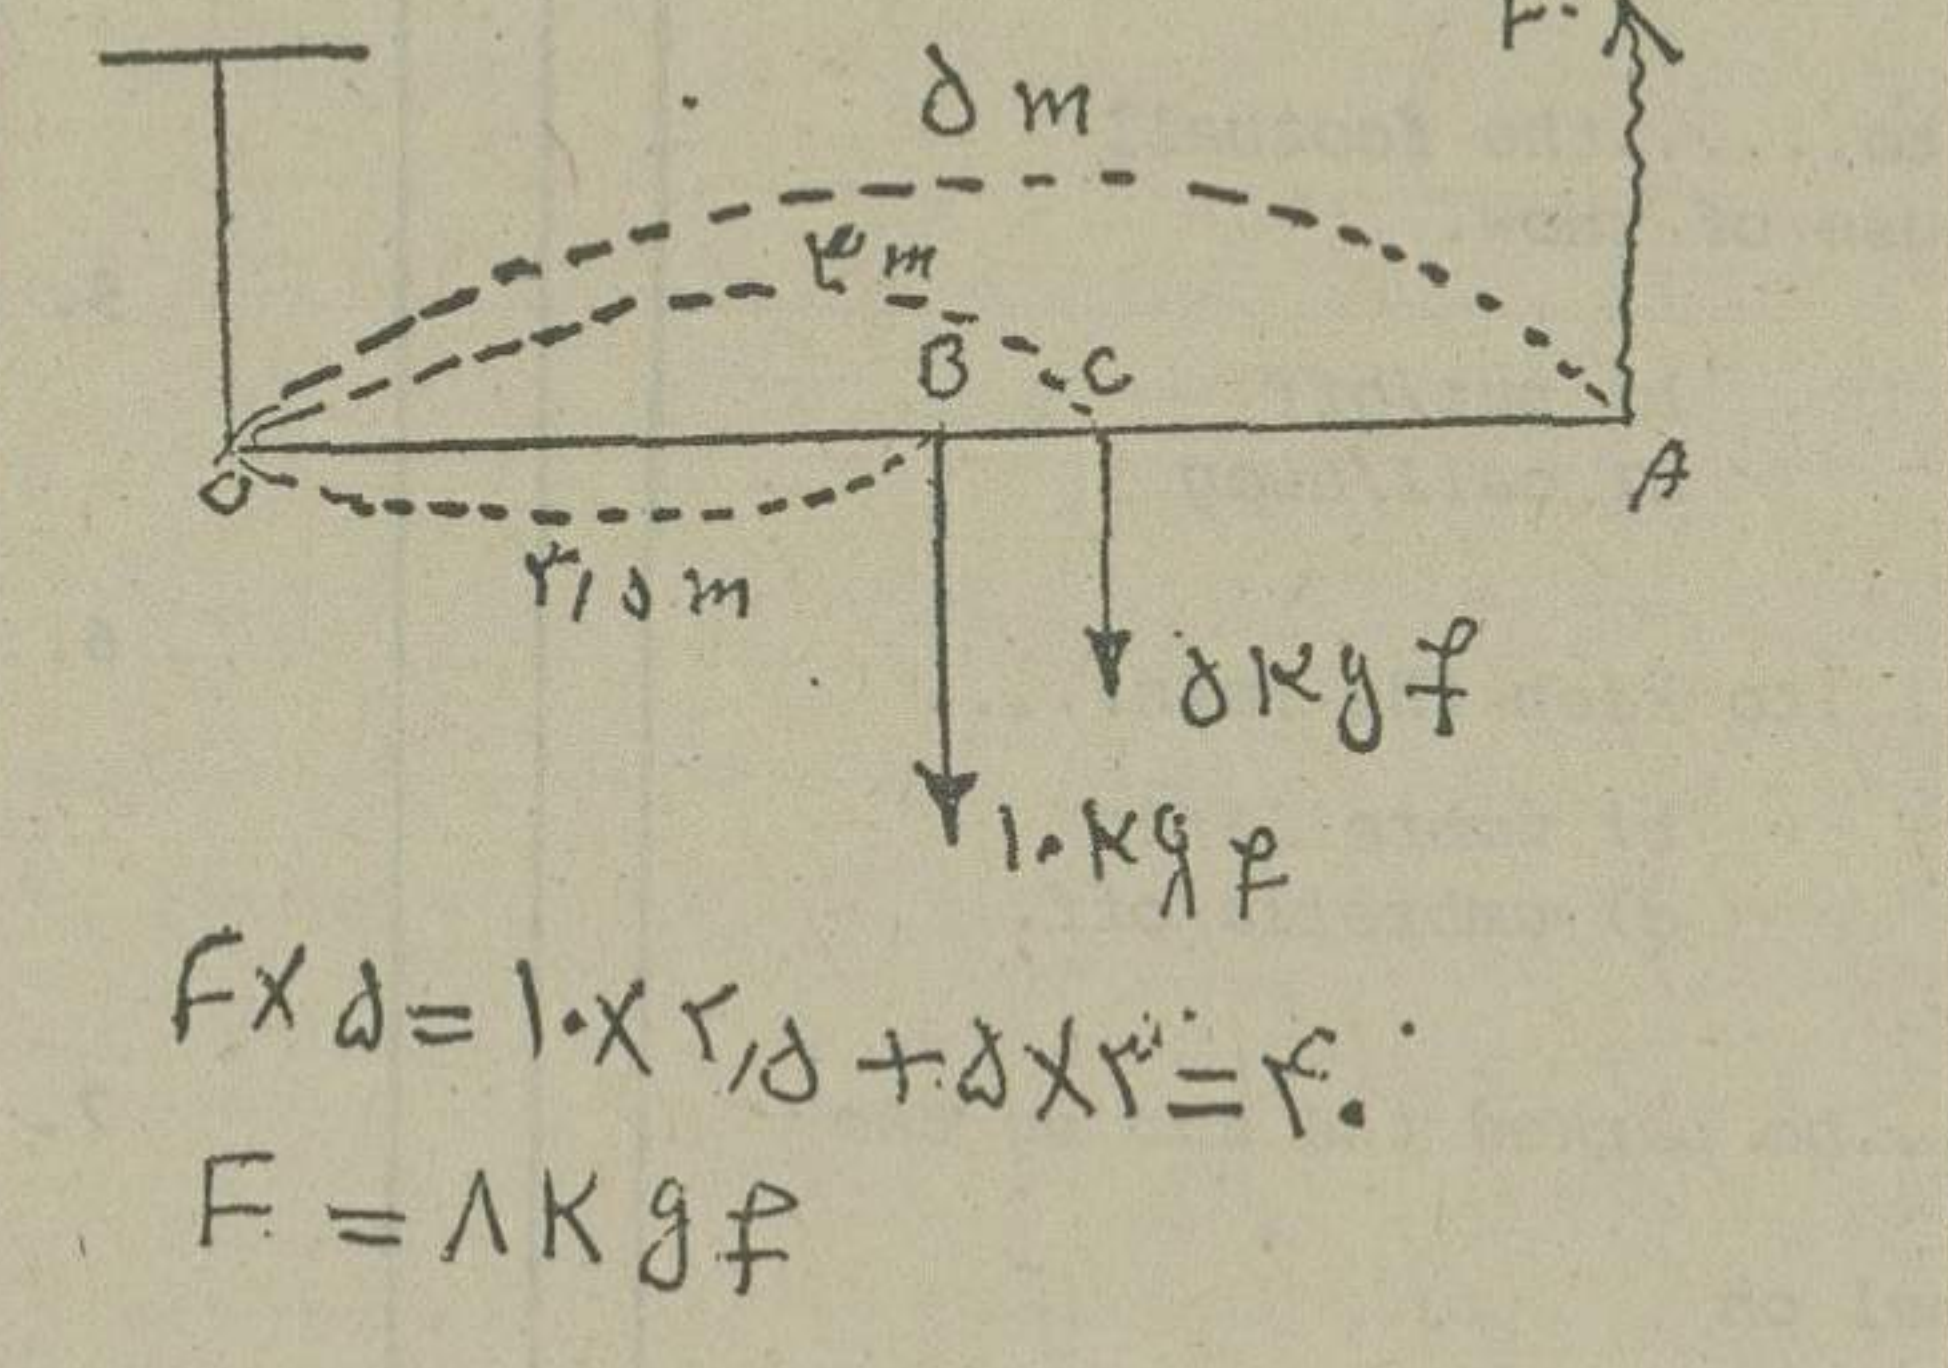 F
۵ m
۳ m
B C
O A
۲,۵ m
۵ Kg f
۱۰ Kg f
F × ۵ = ۱۰ × ۲,۵ + ۵ × ۳ = ۴۰
F = ۸ K g f